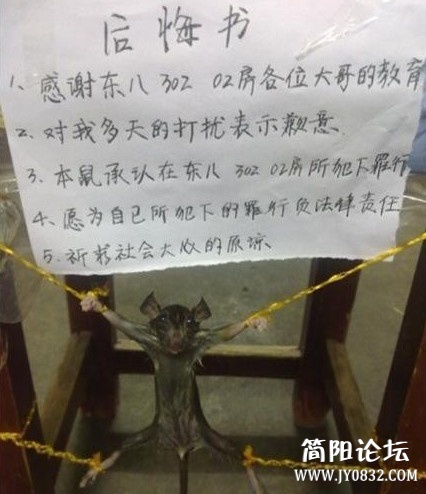 后悔书
1、感谢东八 302 02房各位大哥的教育
2、对我多天的打扰表示歉意.
3、本鼠承认在东八 302 02房所犯下罪行
4、愿为自己所犯下的罪行负法律责任
5、祈求社会大众的原谅
简阳论坛
WWW.JY0832.COM